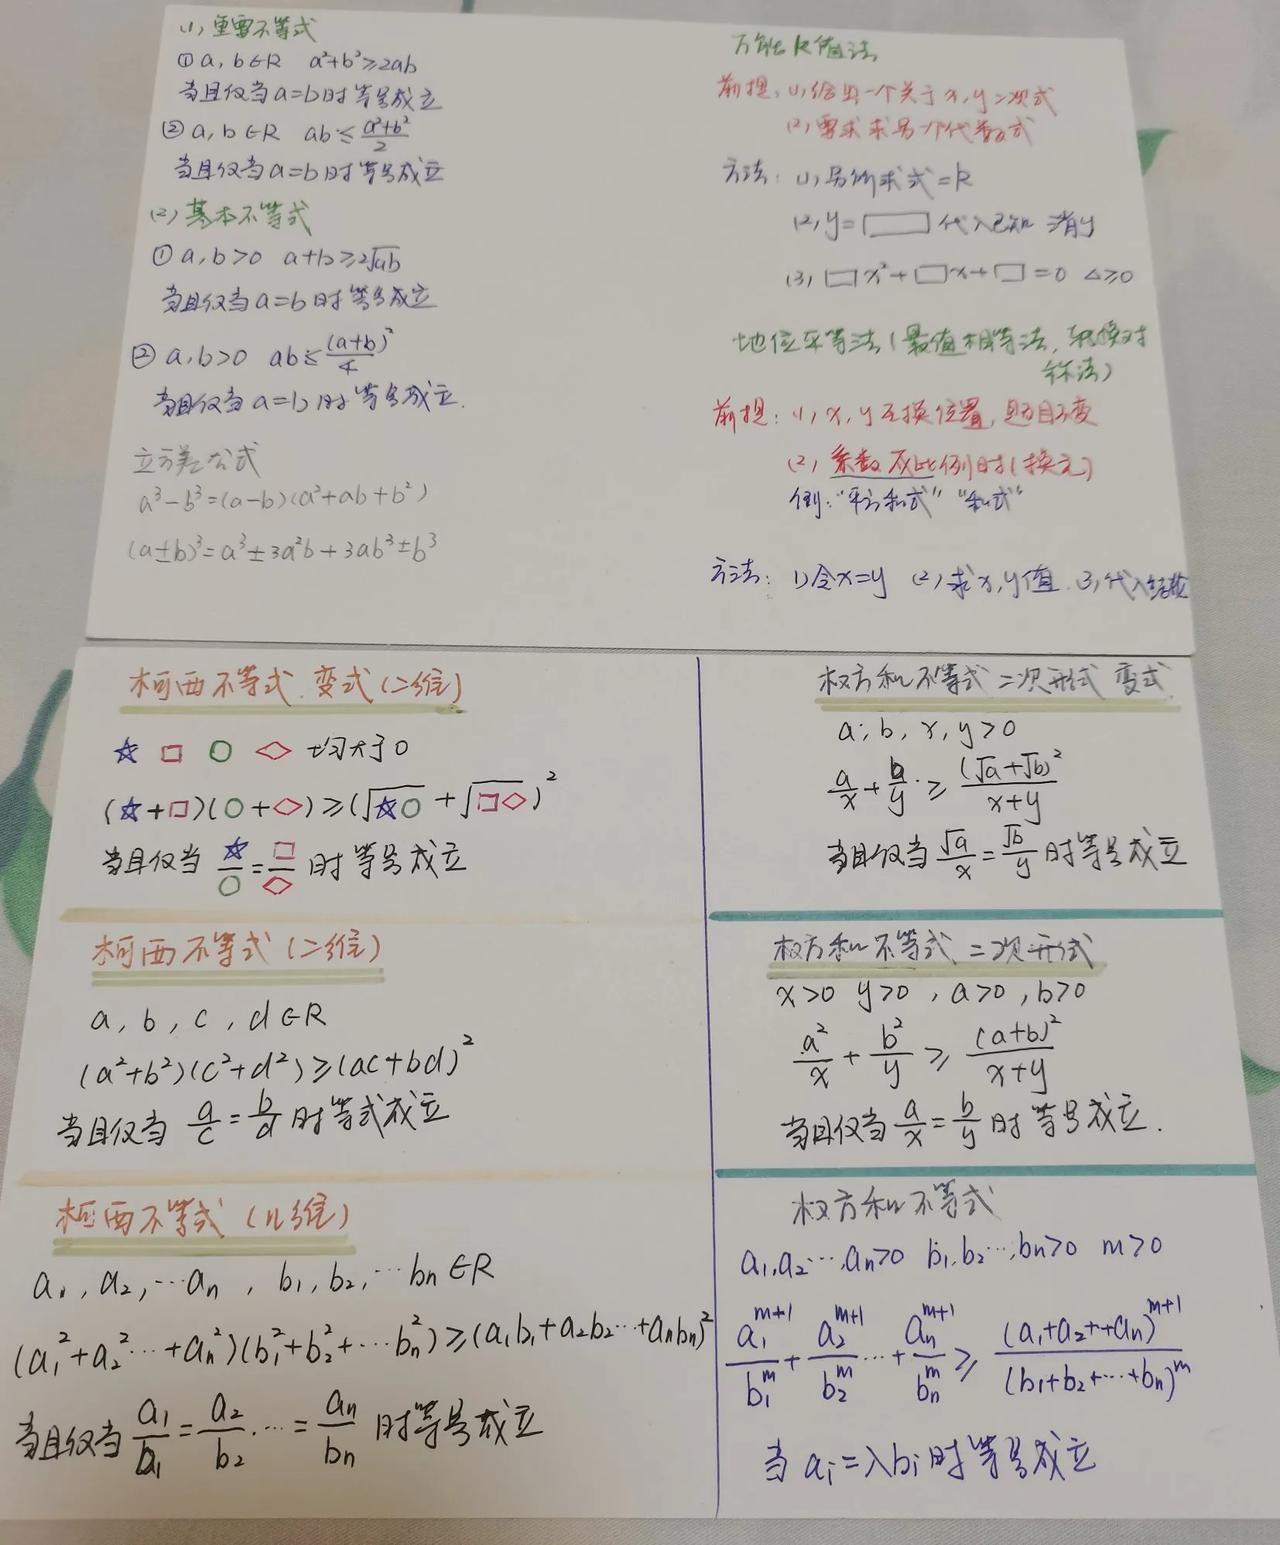 (1) 重要不等式
① a, b∈R a²+b²≥2ab
当且仅当a=b时等号成立
② a, b∈R ab≤(a²+b²)/2
当且仅当a=b时等号成立
(2) 基本不等式
① a, b>0 a+b≥2√ab
当且仅当a=b时等号成立
② a, b>0 ab≤(a+b)²/4
当且仅当a=b时等号成立.
立方差公式
a³-b³=(a-b)(a²+ab+b²)
(a±b)³=a³±3a²b+3ab³±b³
万能k值法
前提: (1) 给出一个关于x, y二次式
(2) 要求求另一个代数式
方法: (1) 另所求式=k
(2) y=□ 代入已知 消y
(3) □x²+□x+□=0 Δ≥0
地位平等法(最值相等法, 轮换对
称法)
前提: (1) x, y互换位置, 题目不变
(2) 系数成比例时(换元)
例: "平方和式" "和式"
方法: 1) 令x=y (2) 求x, y值. (3) 代入结构
柯西不等式 变式(二维)
☆ □ ○ ◇ 均大于0
(☆+□)(○+◇)≥(√☆○+√□◇)²
当且仅当 ☆/○=□/◇ 时等号成立
柯西不等式(二维)
a, b, c, d∈R
(a²+b²)(c²+d²)≥(ac+bd)²
当且仅当 a/c=b/d 时等式成立
柯西不等式(n维)
a₁, a₂, ⋯aₙ, b₁, b₂, ⋯bₙ∈R
(a₁²+a₂²⋯+aₙ²)(b₁²+b₂²+⋯bₙ²)≥(a₁b₁+a₂b₂⋯+aₙbₙ)²
当且仅当 a₁/b₁=a₂/b₂⋯=aₙ/bₙ 时等号成立
权方和不等式 二次形式 变式
a, b, x, y>0
a/x+b/y≥(√a+√b)²/(x+y)
当且仅当 √a/x=√b/y 时等号成立
权方和不等式 二次形式
x>0 y>0, a>0, b>0
a²/x+b²/y≥(a+b)²/(x+y)
当且仅当 a/x=b/y 时等号成立.
权方和不等式
a₁, a₂⋯, aₙ>0 b₁, b₂⋯, bₙ>0 m>0
a₁ᵐ⁺¹/b₁ᵐ+a₂ᵐ⁺¹/b₂ᵐ⋯+aₙᵐ⁺¹/bₙᵐ≥(a₁+a₂+⋯+aₙ)ᵐ⁺¹/(b₁+b₂+⋯+bₙ)ᵐ
当 aᵢ=λbᵢ 时等号成立